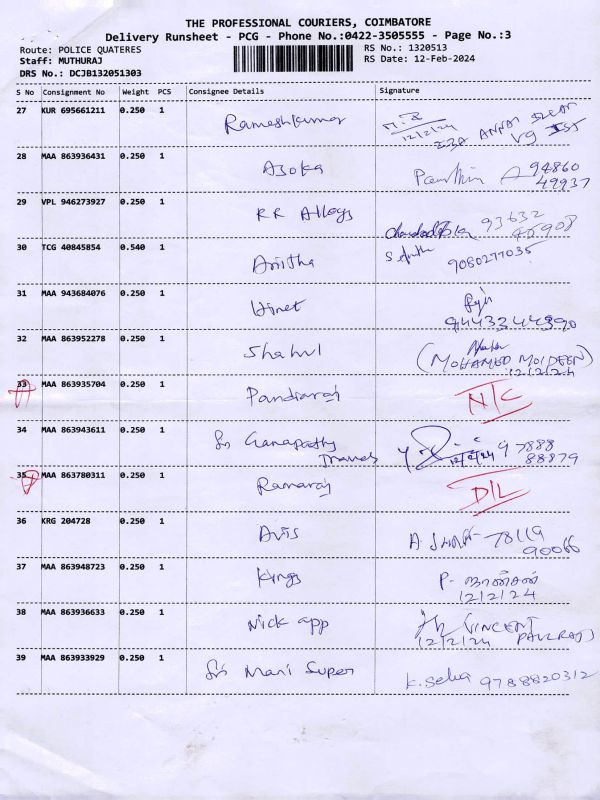 THE PROFESSIONAL COURIERS, COIMBATORE
Delivery Runsheet - PCG - Phone No.:0422-3505555 - Page No.:3
Route: POLICE QUATERES
RS No.: 1320513
Staff: MUTHURAJ
RS Date: 12-Feb-2024
DRS No.: DCJB132051303
S No Consignment No Weight PCS Consignee Details Signature
27 KUR 695661211 0.250 1 Rameshkumar
12/2/24
28 MAA 863936431 0.250 1 Asoka 94860
49937
29 VPL 946273927 0.250 1 RR Alloys 93632
30 TCG 40845854 0.540 1 Anitha 9080277035
31 MAA 943684076 0.250 1 Hinet
9443344390
32 MAA 863952278 0.250 1 Shahul
(MOHAMED MOIDEEN)
12/2/24
33 MAA 863935704 0.250 1 Pandiaraj N/C
34 MAA 863943611 0.250 1 Sri Ganapathy 97888
Travels 12/2/24 88879
35 MAA 863780311 0.250 1 Ramaraj D/L
36 KRG 204728 0.250 1 Avis 78119
90066
37 MAA 863948723 0.250 1 Kings P. ஜான்சன்
12/2/24
38 MAA 863936633 0.250 1 Nick app VINCENT
12/2/24 PAULRAJ
39 MAA 863933929 0.250 1 Sri Mani Super K. Selva 9788820312